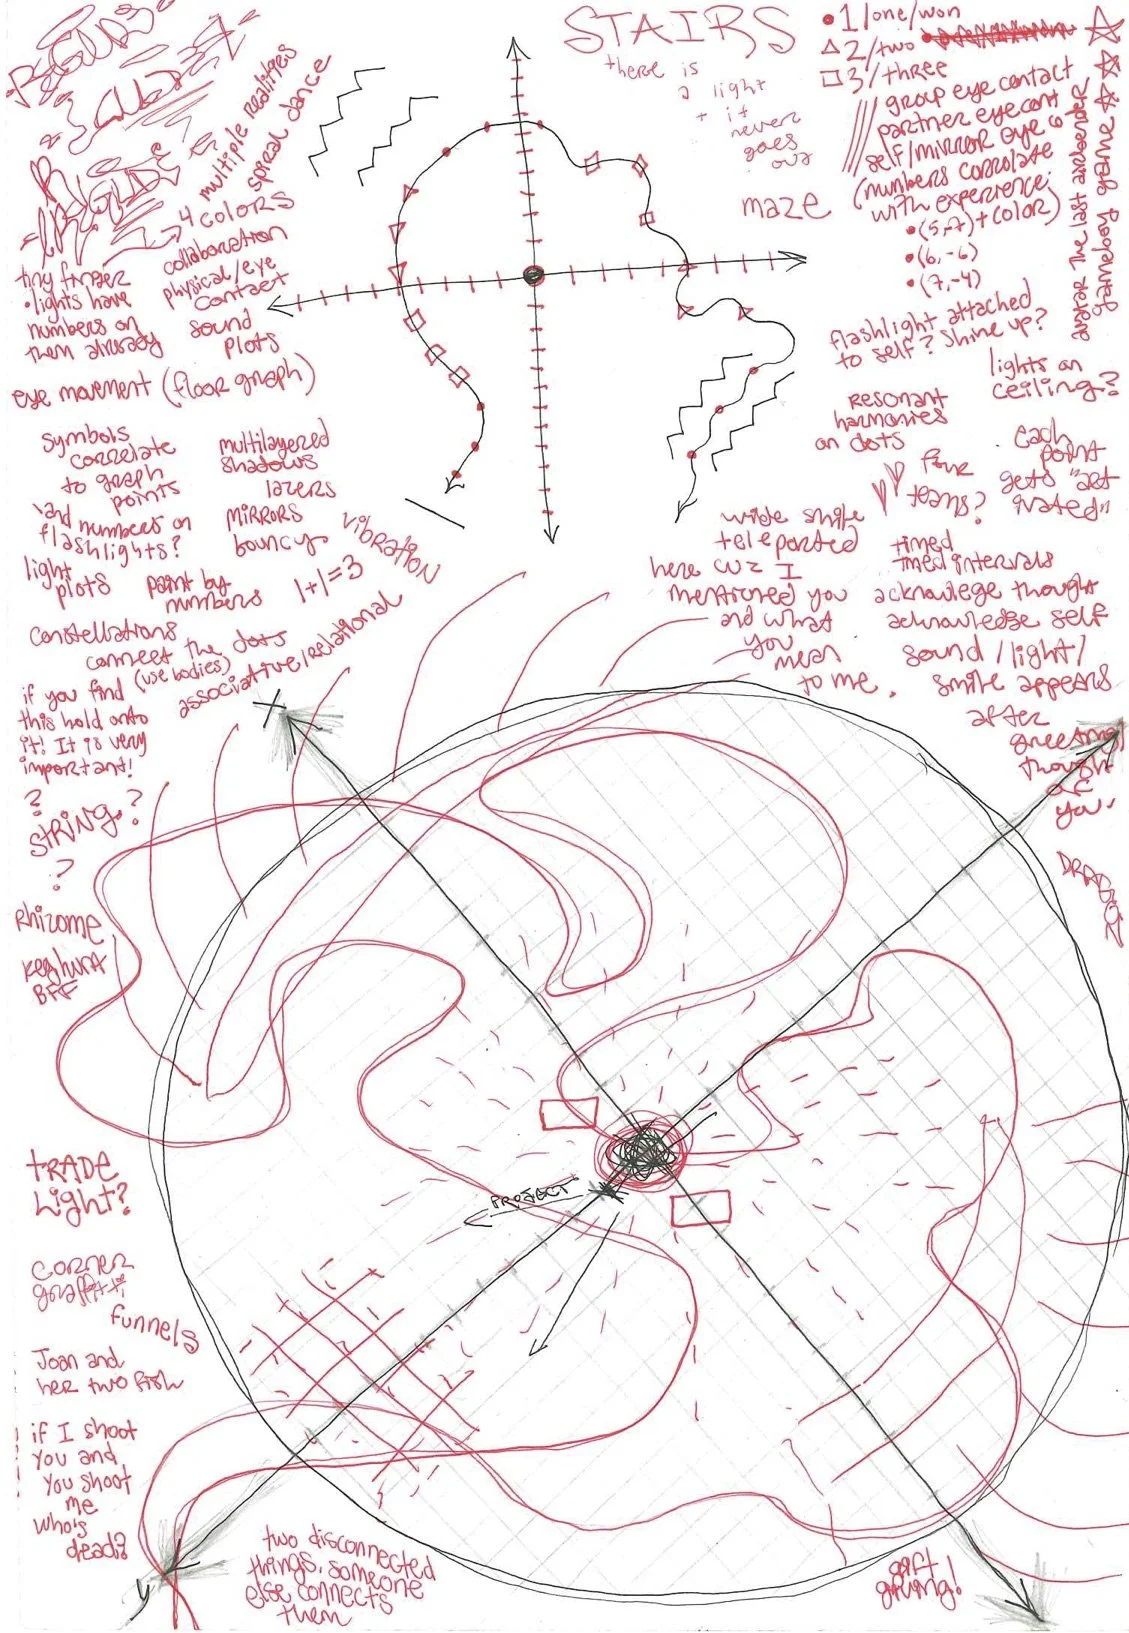 STAIRS
there is
a light
+ it
never
goes
out
maze
1/one/won
2/two
3/three
group eye contact
partner eye cont
self/mirror eye co
(numbers correlate
with experience:
• (5,-7) + color)
• (6,-6)
• (7,-4)
avatar the last airbender
multiple realities
spiral dance
4 colors
collaboration
physical/eye
contact
sound
plots
tiny finger
• lights have
numbers on
them already
eye movement (floor graph)
flashlight attached
to self? Shine up?
lights on
ceiling?
resonant
harmonies
on dots
four
teams?
each
point
gets "act
ivated"
symbols
correlate
to graph
points
and numbers on
flashlights?
light
plots
multilayered
shadows
lazers
mirrors
bouncy
vibration
paint by
numbers
1+1=3
constellations
connect the dots
(use bodies)
associative/relational
if you find
this hold onto
it! It is very
important!
?
STRING?
?
wide smile
teleported
here cuz I
mentioned you
and what
you
mean
to me.
timed
timed intervals
acknowlege thought
acknowledge self
sound/light/
smile appears
after
greeting/
thought
of
you
X
Rhizome
Keghura
BFF
PROJECT
TRADE
Light?
corner
graffiti
funnels
Joan and
her two fish
if I shoot
you and
you shoot
me
who's
dead?
y
two disconnected
things, someone
else connects
them
gift
giving!